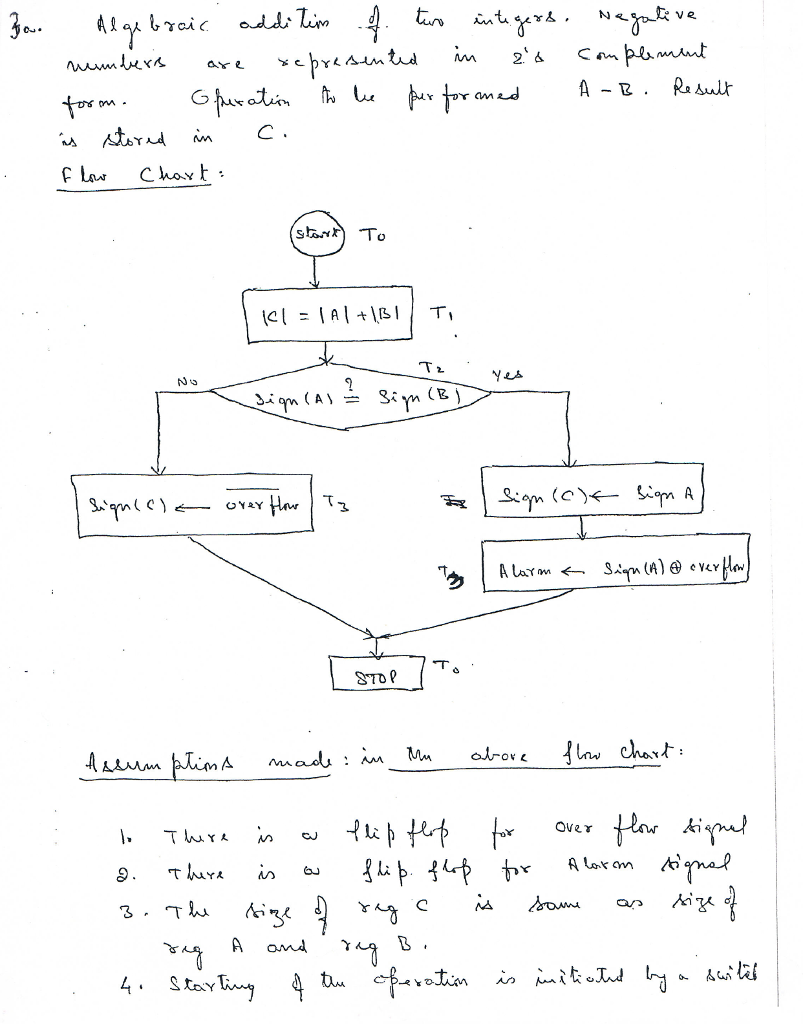 3a. Algebraic addition of two integers. Negative
numbers are represented in 2's complement
form. Operation to be performed A - B. Result
is stored in C.
Flow Chart:
Start T0
|C| = |A| + |B| T1
T2
No Sign(A) ?= Sign(B) Yes
Sign(C) ← over flow T3
Sign(C) ← Sign A
T3 Alarm ← Sign(A) ⊕ overflow
STOP T0
Assumptions made: in the above flow chart:
1. There is a flip flop for over flow signal
2. There is a flip. flop for Alarm signal
3. The size of reg C is same as size of
reg A and reg B.
4. Starting of the operation is initiated by a switch